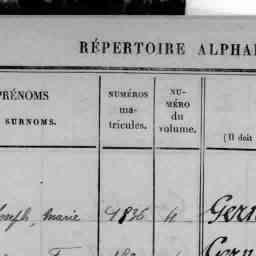 RÉPERTOIRE ALPHA
PRÉNOMS
SURNOMS.
NUMÉROS
ma-
tricules.
NU-
MÉRO
du
volume.
(Il doit
Joseph, Marie 1836 4 Gern